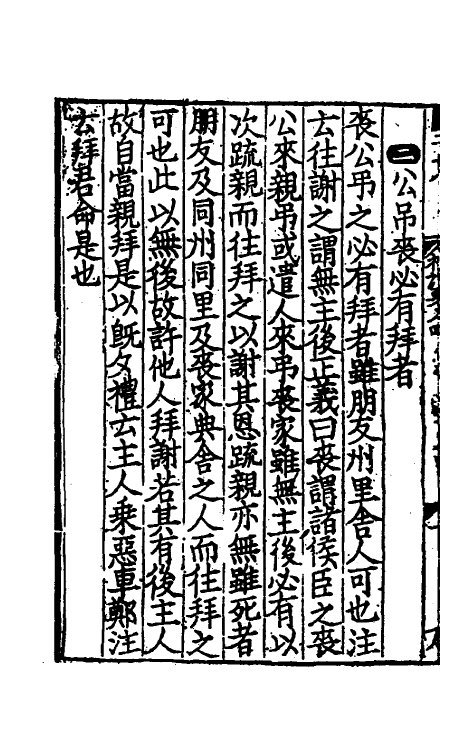 二公吊喪必有拜者
喪公弔之必有拜者雖朋友州里舎人可也注
去往謝之謂無主後正義曰喪謂諸侯臣之喪
公來親弔或遣人來弔喪家雖無主後必有以
次䟽親而往拜之以謝其恩䟽親亦無雖死者
朋友及同州同里及喪家典舎之人而往拜之
可也此以無後故許他人拜謝若其有後主人
故自當親拜是以旣夕禮云主人乗惡車鄭注
云拜君命是也